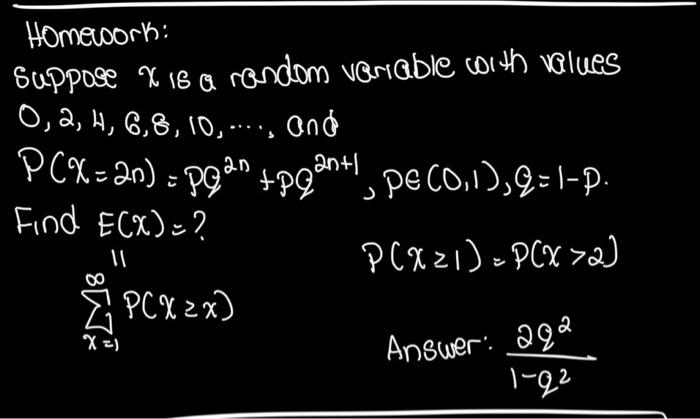 Homework:
Suppose X is a random variable with values
0, 2, 4, 6, 8, 10, ...., and
P(X=2n) = pq^2n + pq^2n+1, p∈(0,1), q=1-p.
Find E(X) = ?
||
∞
∑ P(X≥x)
x=1
P(X≥1) = P(X>2)
Answer: 2q²
1-q²